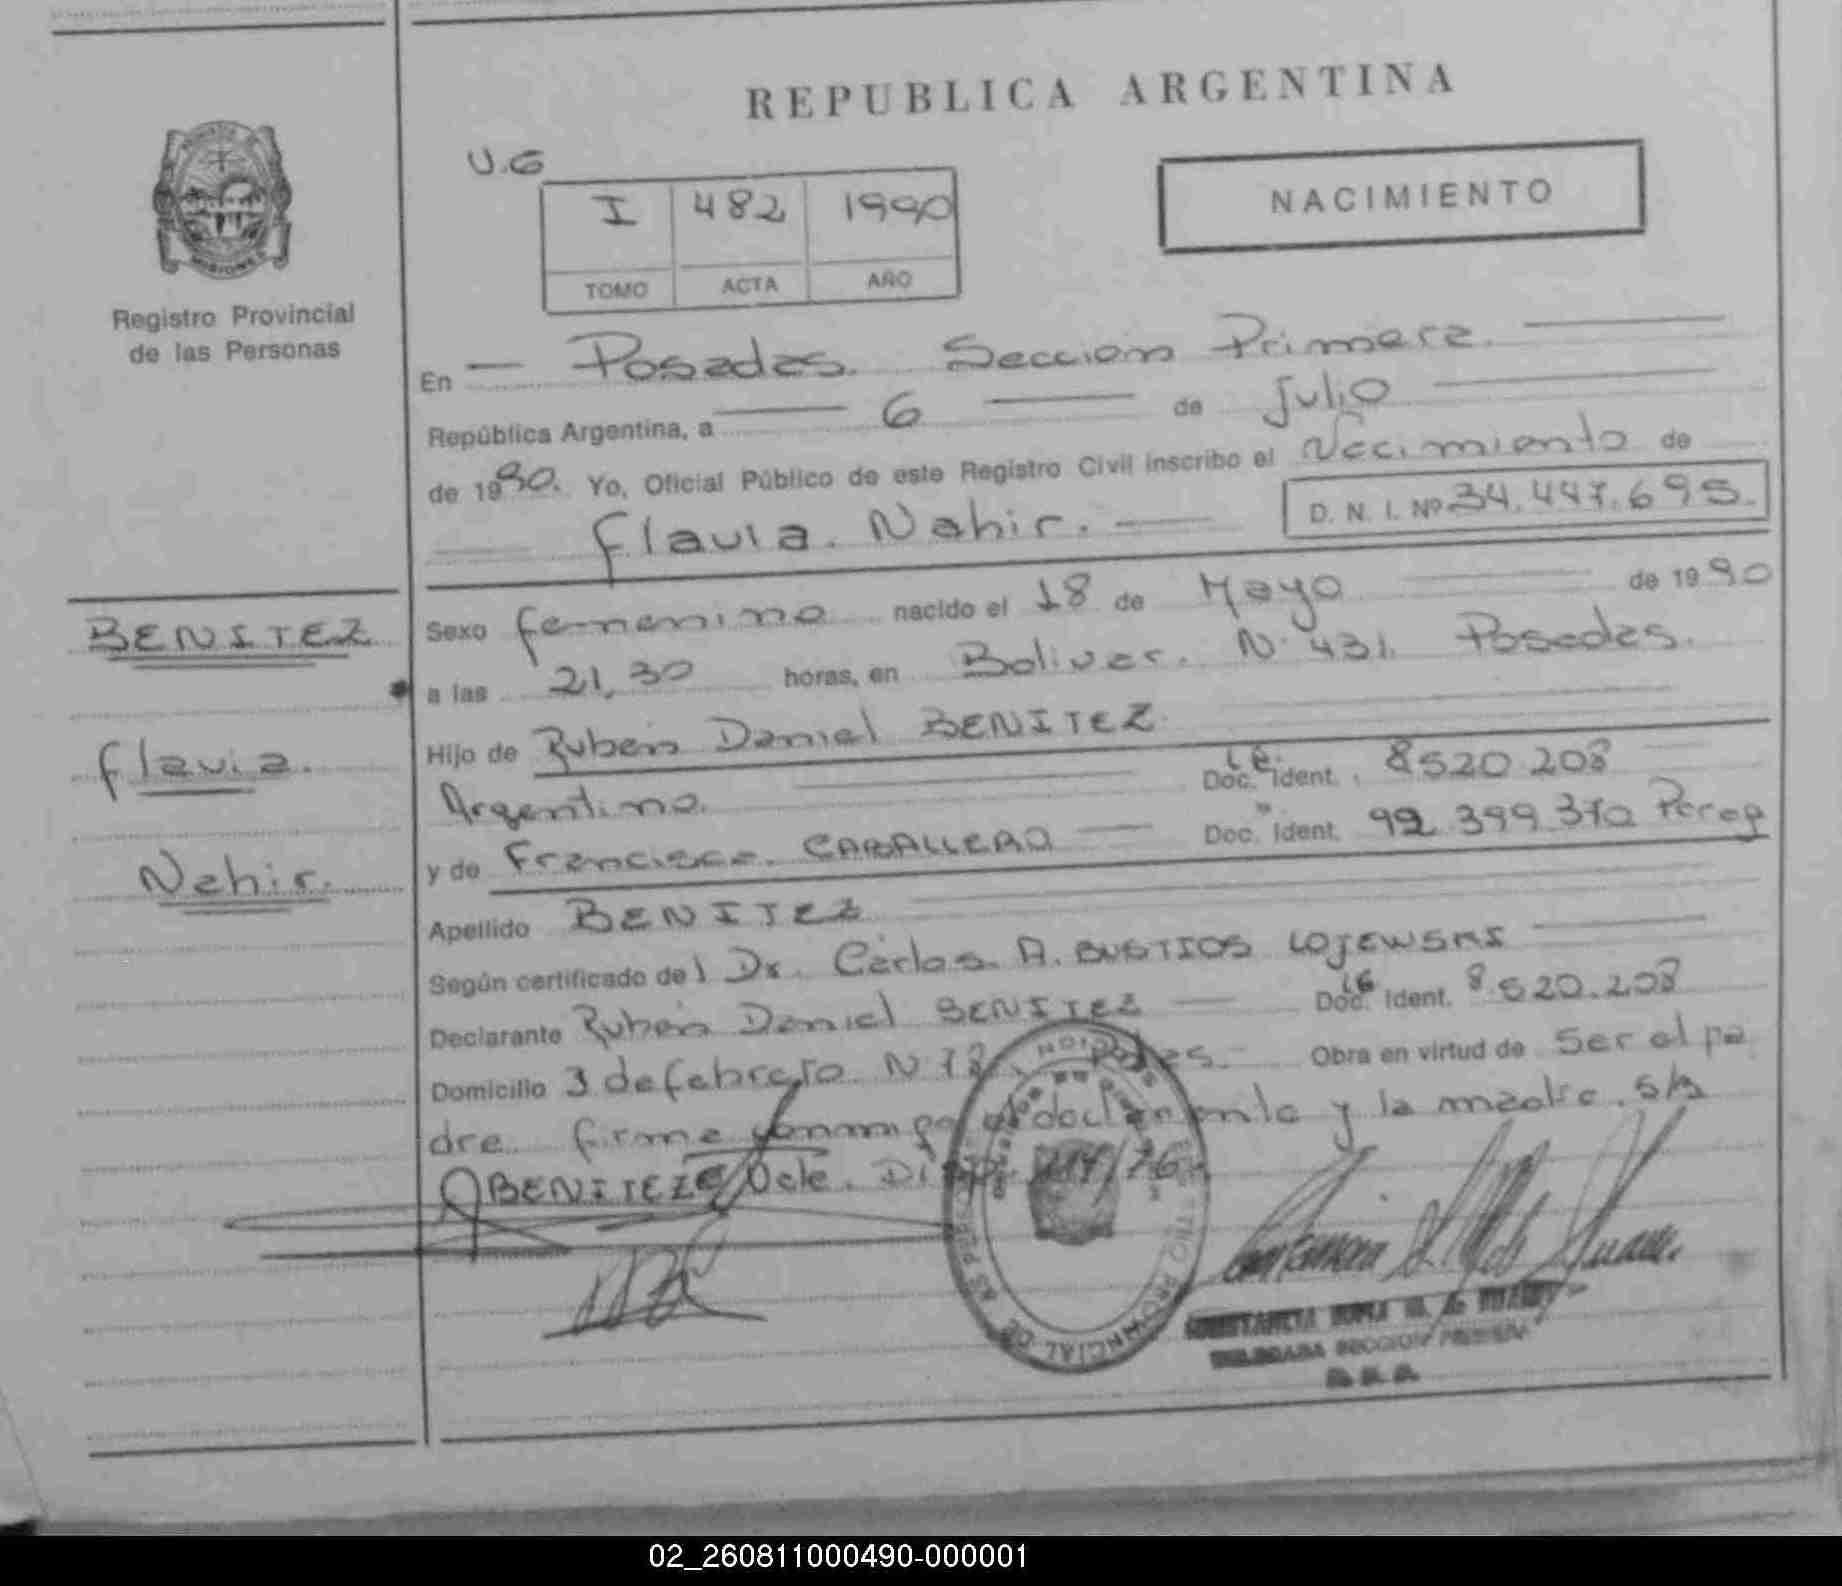 REPUBLICA ARGENTINA
NACIMIENTO
U.G
I 482 1990
TOMO ACTA AÑO
MISIONES
Registro Provincial
de las Personas
En Posadas. Seccion Primera.
República Argentina, a 6 de Julio
de 1990. Yo, Oficial Público de este Registro Civil inscribo el Nacimiento de
Flavia. Nahir. D. N. I. Nº 34.447.695.
BENITEZ
Flavia.
Nahir.
Sexo femenino nacido el 18 de Mayo de 1990
a las 21,30 horas, en Bolivar. N. 431. Posadas.
Hijo de Ruben Daniel BENITEZ
Argentino. Doc. Ident. L.E. 8520 208
y de Francisca. CABALLERO Doc. Ident. 92 399 370 Parag
Apellido BENITEZ
Según certificado del Dr. Carlos. A. BUSTIOS LOJEWSKI
Declarante Ruben Daniel BENITEZ Doc. Ident. LE 8.520.208
Domicilio 3 de febrero N Obra en virtud de Ser el pa
dre. firma conmigo el declarante y la madre. S/R
BENITEZ Vale. /76
PROVINCIAL DE LAS
DELEGADA SECCION PRIMERA
02_260811000490-000001